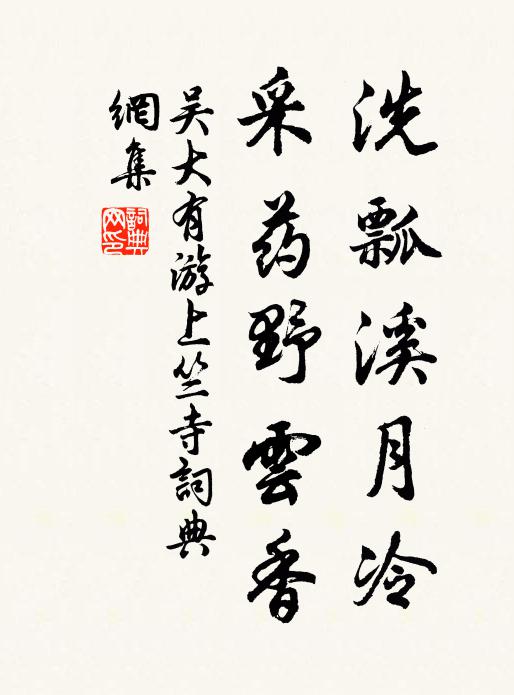 洗瓢溪月冷
采药野雲香
吴大有游上竺寺詞典
網集
詞典
网印